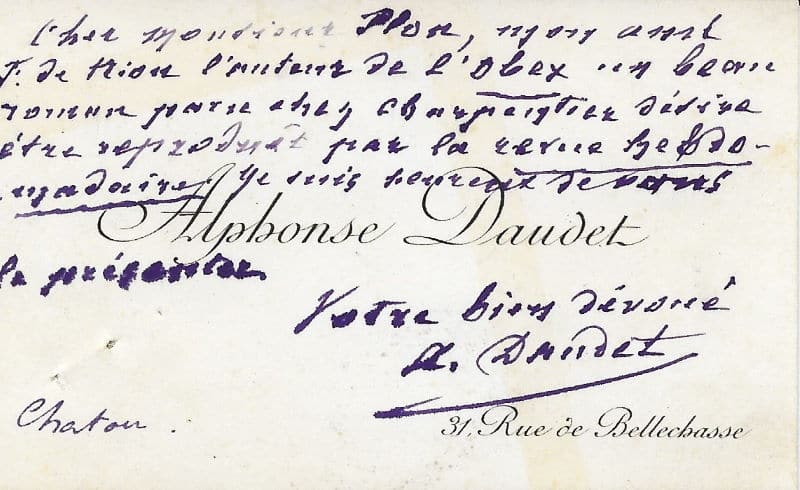 Cher Monsieur Plon, mon ami
T. de Nion l'auteur de l'Obex un beau
roman paru chez Charpentier désire
être reproduit par la revue hebdo-
madaire. Je suis heureux de vous
Alphonse Daudet
le présenter.
Votre bien dévoué
A. Daudet
Chatou.
31, Rue de Bellechasse